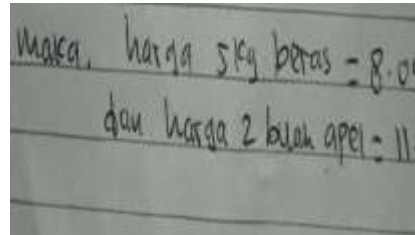 maka, harga 5 kg beras = 8.0
dan harga 2 buah apel = 11